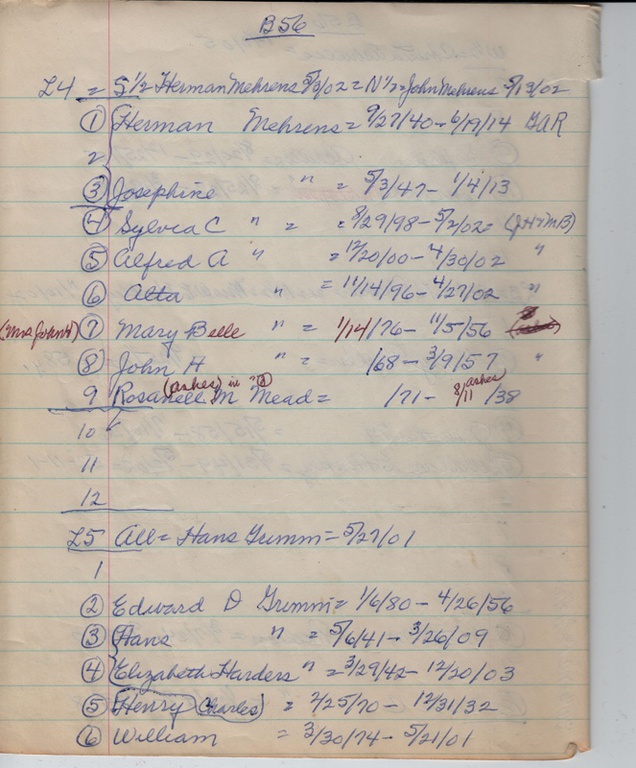 B56
L4 = S 1/2 Herman Mehrens 5/3/02 = N 1/2 = John Mehrens 5/13/02
1 Herman Mehrens = 9/27/40 - 6/19/14 GAR
2
3 Josephine " = 5/3/47 - 1/4/13
4 Sylvia C " = = 8/29/98 - 5/2/02 = (JH+MB)
5 Alfred A " = 12/20/00 - 4/30/02 "
6 Atta " = 11/14/96 - 4/27/02 "
(Mrs John H) 7 Mary Belle " = 1/14/76 - 11/5/56
8 John H " = /68 - 3/9/57 "
(ashes) in ashes
9 M Mead = /71 - 8/11/38
10
11
12
L5 All = Hans Grumm = 5/27/01
1
2 Edward D Grumm = 1/6/80 - 4/26/56
3 Hans " = 5/6/41 - 3/26/09
4 Elizabeth Harders " = 3/29/42 - 12/20/03
5 Henry (Charles) = 2/25/70 - 12/31/32
6 William = 3/30/74 - 5/21/01